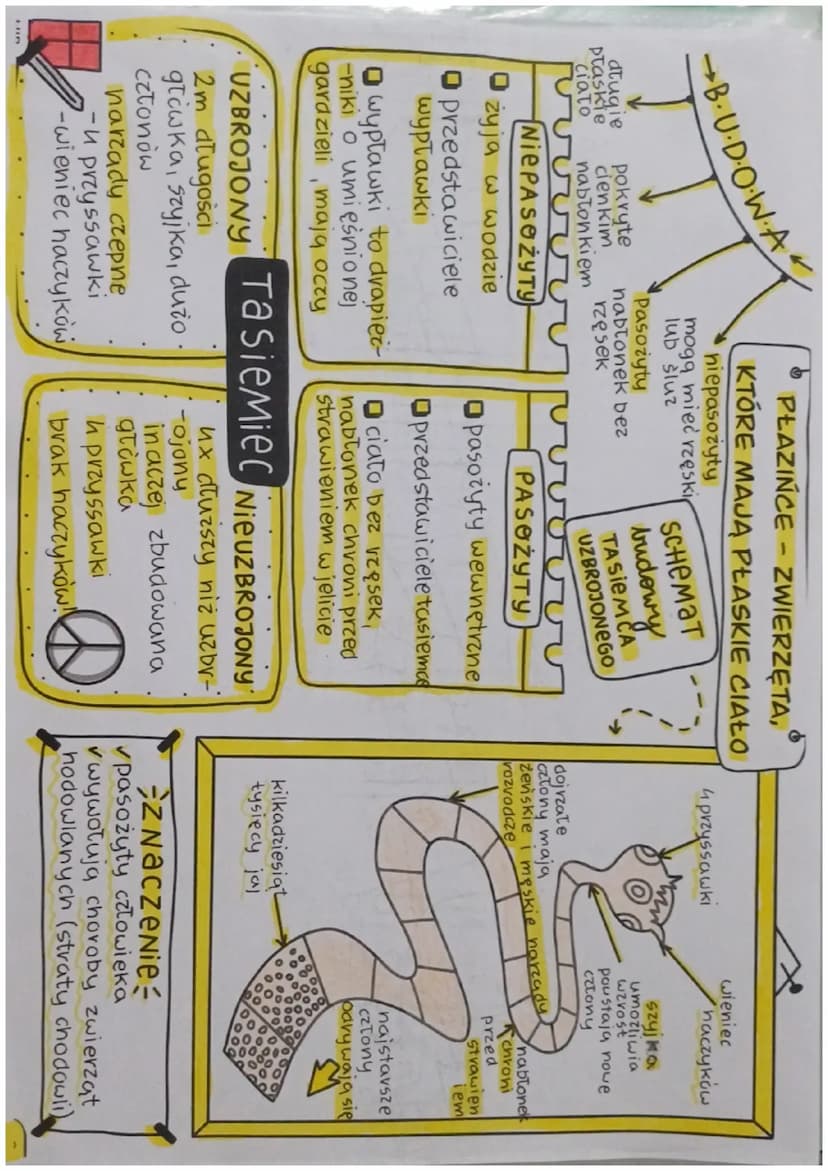 PŁAZIŃCE - ZWIERZĘTA,
KTÓRE MAJĄ PŁASKIE CIAŁO
→B.U.D.O.W.A←
długie
płaskie
ciało
pokryte
cienkim
nabłonkiem
pasożyty
nabłonek bez
rzęsek
niepasożyty
mogą mieć rzęski
lub śluz
NIEPASOŻYTY
żyją w wodzie
przedstawiciele
wypławki
wypławki to drapież-
-niki o umięśnionej
gardzieli, mają oczy
PASOŻYTY
pasożyty wewnętrzne
przedstawiciele tasiemce
ciało bez rzęsek,
nabłonek chroni przed
strawieniem w jelicie
TASIEMIEC
UZBROJONY
2m długości
główka, szyjka, dużo
członów
narządy czepne
-4 przyssawki
-wieniec haczyków
NIEUZBROJONY
4x dłuższy niż uzbr-
-ojony
inaczej zbudowana
główka
4 przyssawki
brak haczyków!
SCHEMAT
budowy
TASIEMCA
UZBROJONEGO
4 przyssawki
wieniec
haczyków
szyjka
umożliwia
wzrost
powstają nowe
człony
dojrzałe
człony mają
żeńskie i męskie narządy
rozrodcze
nabłonek
chroni
przed
strawien
iem
najstarsze
człony
odrywają się
kilkadziesiąt
tysięcy jaj
ZNACZENIE
✓pasożyty człowieka
✓wywołują choroby zwierząt
hodowlanych (straty chodowli)